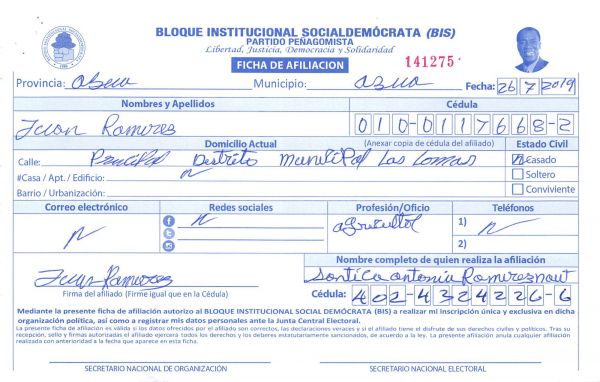 BLOQUE INSTITUCIONAL SOCIALDEMÓCRATA (BIS)
PARTIDO PEÑAGOMISTA
Libertad, Justicia, Democracia y Solidaridad
FICHA DE AFILIACION
141275
Provincia: Asua Municipio: asua Fecha: 26 7 2019
Nombres y Apellidos Cédula
Juan Ramires 010-0117668-2
Domicilio Actual (Anexar copia de cédula del afiliado) Estado Civil
Calle: Distrito Las Lomas Casado
#Casa / Apt. / Edificio: n Soltero
Barrio / Urbanización: Conviviente
Correo electrónico Redes sociales Profesión/Oficio Teléfonos
n n agricultor 1) n
2)
Nombre completo de quien realiza la afiliación
Juan Ramires Antonia
Firma del afiliado (Firme igual que en la Cédula) Cédula: 402-4324226-6
Mediante la presente ficha de afiliación autorizo al BLOQUE INSTITUCIONAL SOCIAL DEMÓCRATA (BIS) a realizar mi inscripción única y exclusiva en dicha
organización política, así como a registrar mis datos personales ante la Junta Central Electoral.
La presente ficha de afiliación es válida si los datos ofrecidos por el afiliado son correctos, las declaraciones veraces y si el afiliado tiene el disfrute de sus derechos civiles y políticos. Tras su
recepción, sello y firmas autorizadas el afiliado ejercerá todos los derechos y los deberes estatutariamente sancionados, de acuerdo a la ley. La presente afiliación anula cualquier afiliación
realizada con anterioridad a la fecha que aparece en esta ficha.
SECRETARIO NACIONAL DE ORGANIZACIÓN SECRETARIO NACIONAL ELECTORAL